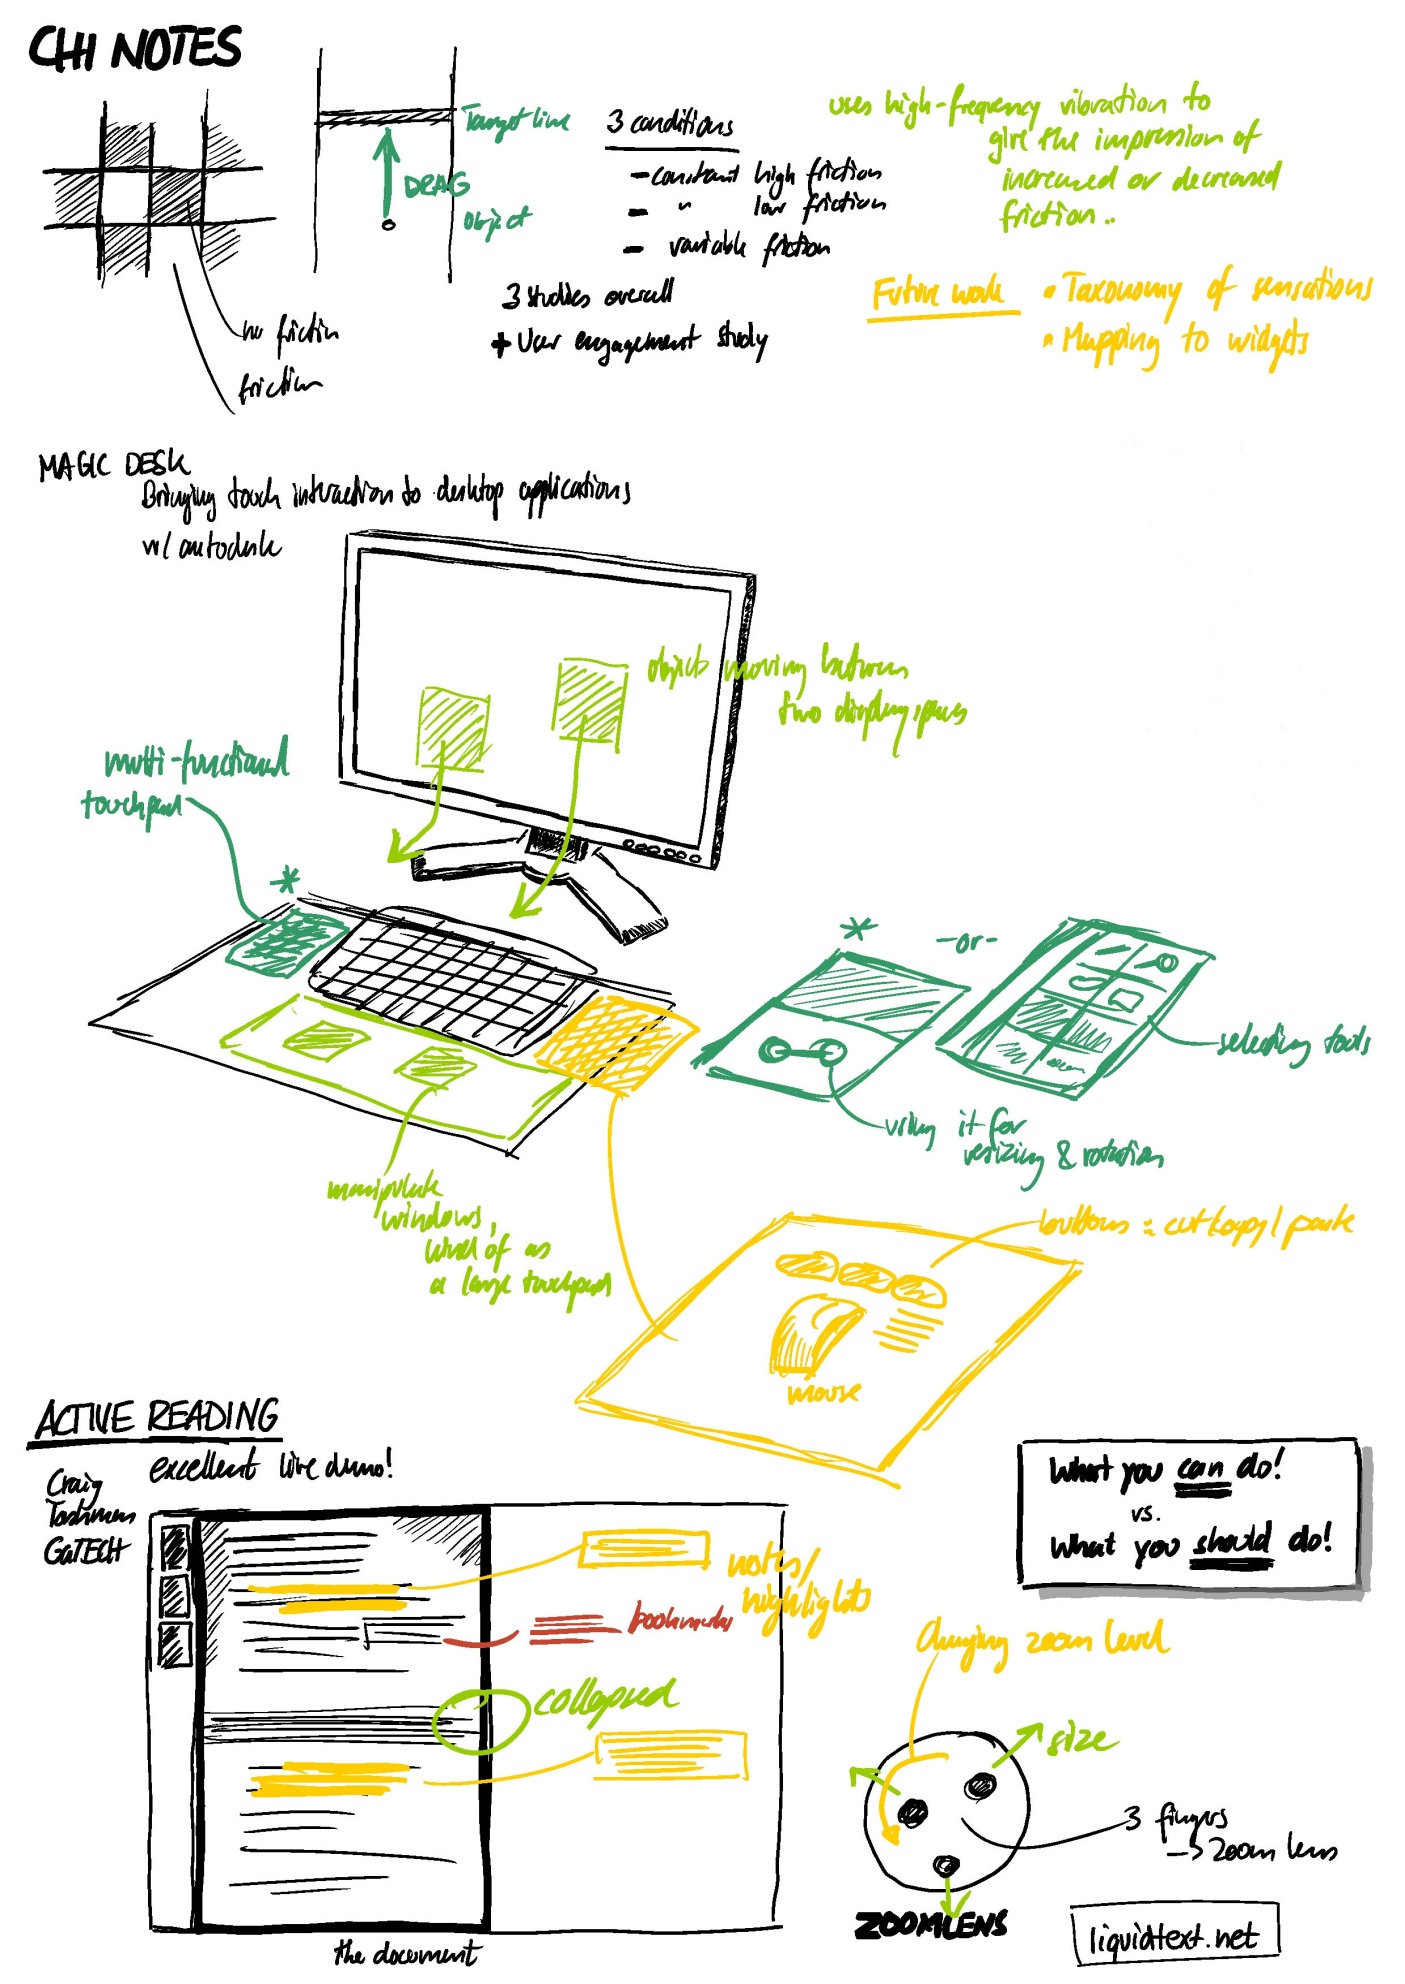 CHI NOTES
Target line
DRAG
object
no friction
friction
3 conditions
- constant high friction
- " low friction
- variable friction
3 studies overall
+ User engagement study
uses high-frequency vibration to
give the impression of
increased or decreased
friction..
Future work
• Taxonomy of sensations
• Mapping to widgets
MAGIC DESK
Bringing touch interaction to desktop applications
w/ autodesk
objects moving between
two display spaces
multi-functional
touchpad
*
*
-or-
selecting tools
using it for
resizing & rotation
manipulate
windows,
kind of as
a large touchpad
buttons = cut/copy/paste
mouse
ACTIVE READING
excellent live demo!
Craig
Tashman
GaTECH
notes/
highlights
bookmarks
collapsed
the document
What you can do!
vs.
What you should do!
Changing zoom level
size
3 fingers
-> zoom lens
ZOOMLENS
liquidtext.net